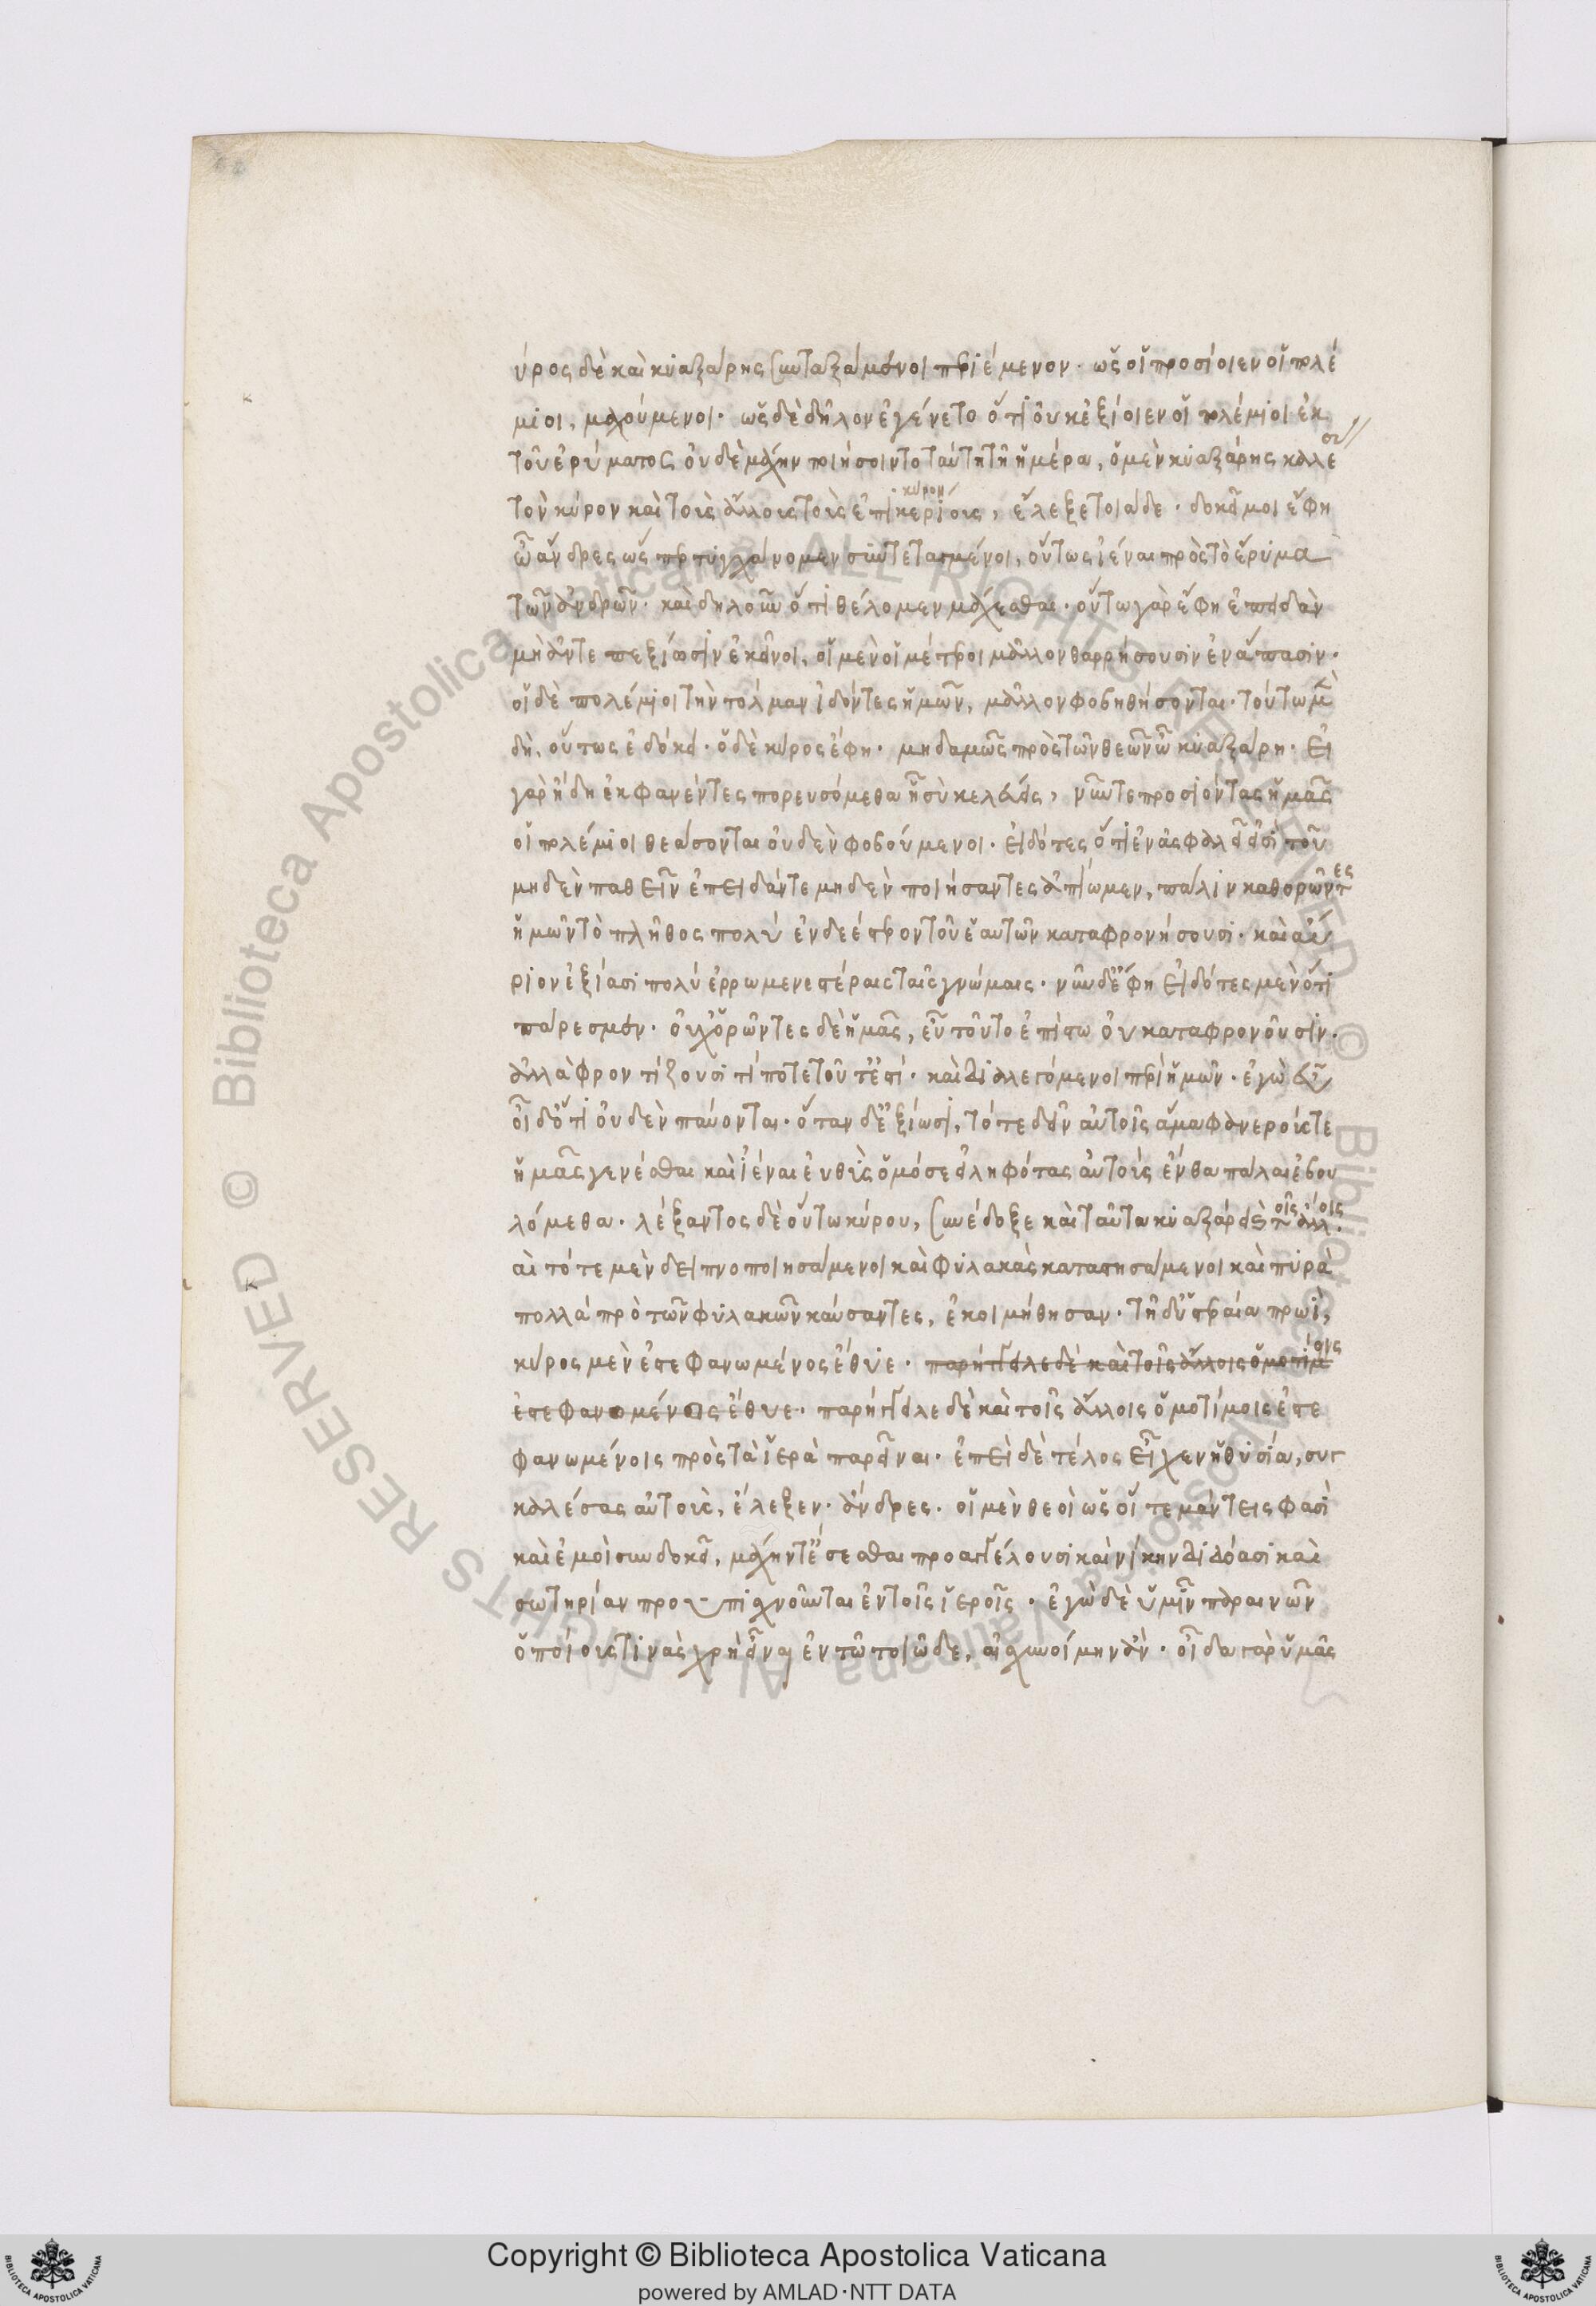 ύρος δὲ καὶ κυαξάρης συνταξάμενοι περιέμενον. ὡς οἱ προσίοιεν οἱ πολέ
μιοι, μαχούμενοι. ὡς δὲ δῆλον ἐγένετο ὅτι οὐκ ἐξίοιεν οἱ πολέμιοι ἐκ
τοῦ ἐρύματος οὐδὲ μάχην ποιήσοιντο ταύτῃ τῇ ἡμέρα, ὁ μὲν κυαξάρης καλέ
σας
τὸν κύρον καὶ τοὺς ἄλλους τοὺς ἐπικερίους, ἔλεξε τοιάδε. δοκεῖ μοι ἔφη
κυρου
ὦ ἄνδρες ὡς περ τυγχάνομεν συντεταγμένοι, οὕτως ἰέναι πρὸς τὸ ἔρυμα
τῶν ἀνδρῶν. καὶ δηλοῦν ὅτι θέλομεν μάχεσθαι. οὕτω γὰρ ἔφη ἐπειδὰν
μὴ ἀντεπεξίωσιν ἐκεῖνοι, οἱ μὲν ἡμέτεροι μᾶλλον θαρρήσουσιν ἐν ἅπασιν.
οἱ δὲ πολέμιοι τὴν τόλμαν ἰδόντες ἡμῶν, μᾶλλον φοβηθήσονται. τούτω μὲν
δὴ, οὕτως ἐδόκει. ὁ δὲ κύρος ἔφη. μηδαμῶς πρὸς τῶν θεῶν ὦ κυαξάρη. εἰ
γὰρ ἤδη ἐκφανέντες πορευσόμεθα ᾗ σὺ κελεύεις, νῦν τε προσιόντας ἡμᾶς
οἱ πολέμιοι θεάσονται οὐδὲν φοβούμενοι. εἰδότες ὅτι ἐν ἀσφαλεῖ εἰσὶ τοῦ
μηδὲν παθεῖν ἐπειδάν τε μηδὲν ποιήσαντες ἀπίωμεν, πάλιν καθορῶντες
ἡμῶν τὸ πλῆθος πολύ ἐνδεέστερον τοῦ ἑαυτῶν καταφρονήσουσι. καὶ αύ
ριον ἐξίασι πολύ ἐρρωμενεστέραις ταῖς γνώμαις. νῦν δ' ἔφη εἰδότες μὲν ὅτι
πάρεσμεν. οὐχ ὁρῶντες δὲ ἡμᾶς, εὖ τοῦτο ἐπίστω οὐ καταφρονοῦσιν.
ἀλλὰ φροντίζουσι τί ποτε τοῦτ' ἔστί. καὶ διαλεγόμενοι περὶ ἡμῶν. ἐγὼ εὖ
οἶδ' ὅτι οὐδὲν παύονται. ὅταν δ' ἐξίωσι, τότε δεῖν αὐτοῖς ἅμα φανερούς τε
ἡμᾶς γενέσθαι καὶ ἰέναι εὐθὺς ὁμόσε εἰληφότας αὐτοὺς ἔνθα πάλαι ἐβου
λόμεθα. λέξαντος δὲ οὕτω κύρου, συνέδοξε καὶ ταῦτα κυαξάρει καὶ τοῖς ἄλλοις.
αὶ τότε μὲν δειπνοποιησάμενοι καὶ φυλακὰς καταστησάμενοι καὶ πυρὰ
πολλά πρὸ τῶν φυλακῶν καύσαντες, ἐκοιμήθησαν. τῇ δ' ὑστεραία πρωὶ,
κύρος μὲν ἐστεφανωμένος ἔθυε. παρήγγειλε δὲ καὶ τοῖς ἄλλοις ὁμοτίμοις
ἐστεφανομένοις ἔθυε. παρήγγειλε δὲ καὶ τοῖς ἄλλοις ὁμοτίμοις ἐστε
φανωμένοις πρὸς τὰ ἱερὰ παρεῖναι. ἐπεὶ δὲ τέλος εἶχεν ἡ θυσία, συγ
καλέσας αὐτοὺς, ἔλεξεν. ἄνδρες. οἱ μὲν θεοὶ ὡς οἵ τε μάντεις φασὶ
καὶ ἐμοὶ συνδοκεῖ, μάχην τ' ἔσεσθαι προαγγέλουσι καὶ νίκην διδόασι καὶ
σωτηρίαν προυπισχνοῦνται ἐν τοῖς ἱεροῖς. ἐγὼ δὲ ὑμῖν παραινῶν
ὁποίους τινὰς χρὴ εἶναι ἐν τῶ τοιῶδε, αἰσχυνοίμην ἄν. οἶδα γὰρ ὑμᾶς
Copyright © Biblioteca Apostolica Vaticana
powered by AMLAD·NTT DATA